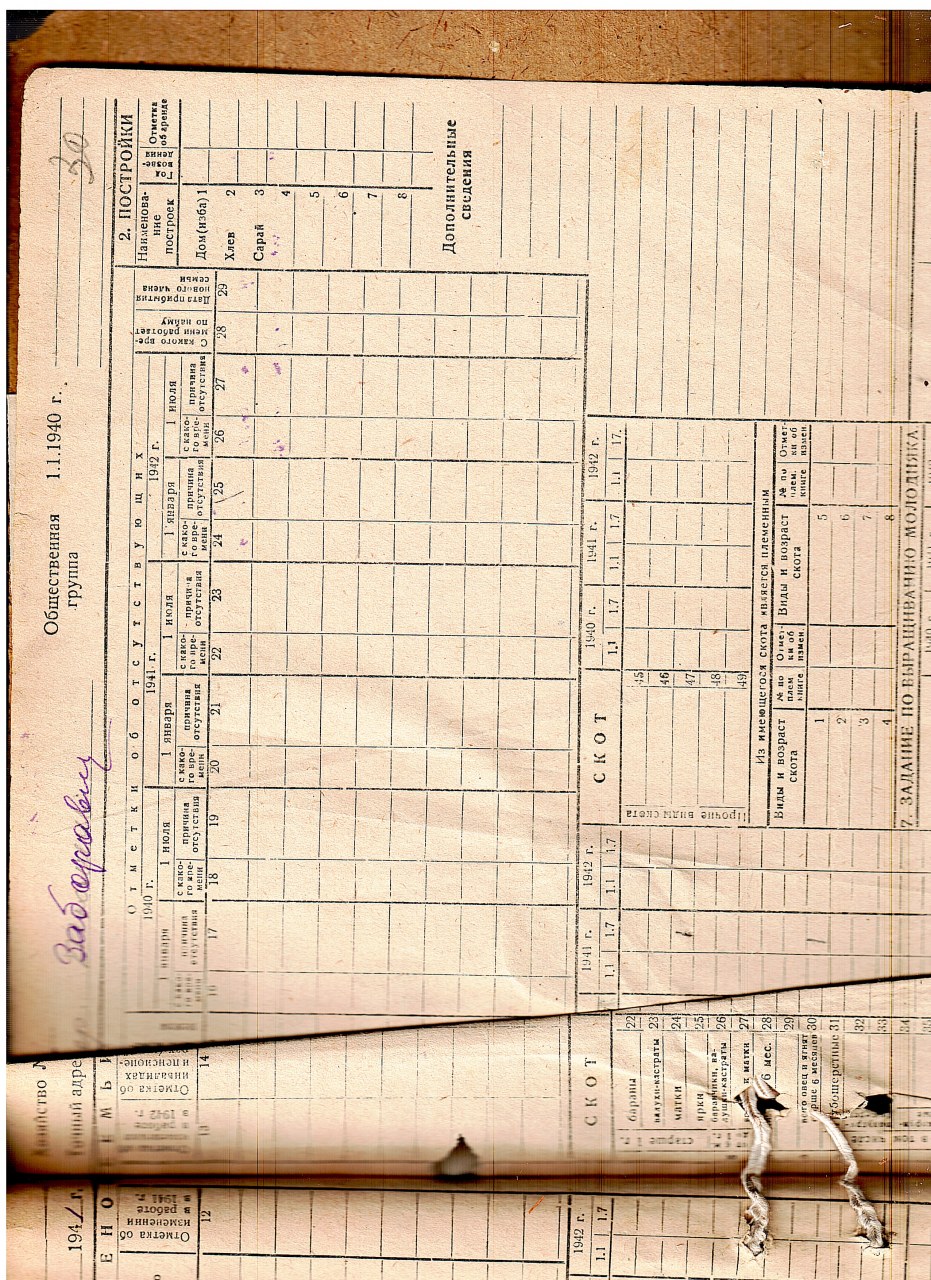 30
Общественная 1.1.1940 г.
группа
Хозяйство №
адрес
194 1 г.
2. ПОСТРОЙКИ
Наименова-
ние
построек
Год
возве-
дения
Отметка
об аренде
Дом (изба) 1
Хлев 2
Сарай 3
4
5
6
7
8
Дополнительные
сведения
Отметки об отсутствующих
1940 г. 1941 г. 1942 г.
1 января 1 июля 1 января 1 июля 1 января 1 июля
причина
отсутствия
с како-
го вре-
мени
причина
отсутствия
с како-
го вре-
мени
причина
отсутствия
с како-
го вре-
мени
причина
отсутствия
с како-
го вре-
мени
причина
отсутствия
с како-
го вре-
мени
причина
отсутствия
С какого вре-
мени работает
по найму
Дата прибытия
нового члена
семьи
16 17 18 19 20 21 22 23 24 25 26 27 28 29
Отметка об
изменении
в работе
в 1941 г.
12
13
Отметка об
инвалидах
и пенсионе-
14
1942 г.
1.1 1.7
СКОТ
1941 г. 1942 г.
1.1 1.7 1.1 1.7
бараны 22
валухи-кастраты 23
матки 24
ярки 25
баранчики, ва-
лушки-кастраты 26
матки 27
6 мес. 28
29
овец и ягнят
6 месяцев 30
31
32
33
34
35
старше 1 г.
СКОТ
1940 г. 1941 г. 1942 г.
1.1 1.7 1.1 1.7 1.1 1.7
Прочие виды скота
45
46
47
48
49
Из имеющегося скота является племенным
Виды и возраст
скота
№ по
плем.
книге
Отмет-
ки об
измен.
Виды и возраст
скота
№ по
плем.
книге
Отмет-
ки об
измен.
1 5
2 6
3 7
4 8
7. ЗАДАНИЕ ПО ВЫРАЩИВАНИЮ МОЛОДНЯКА